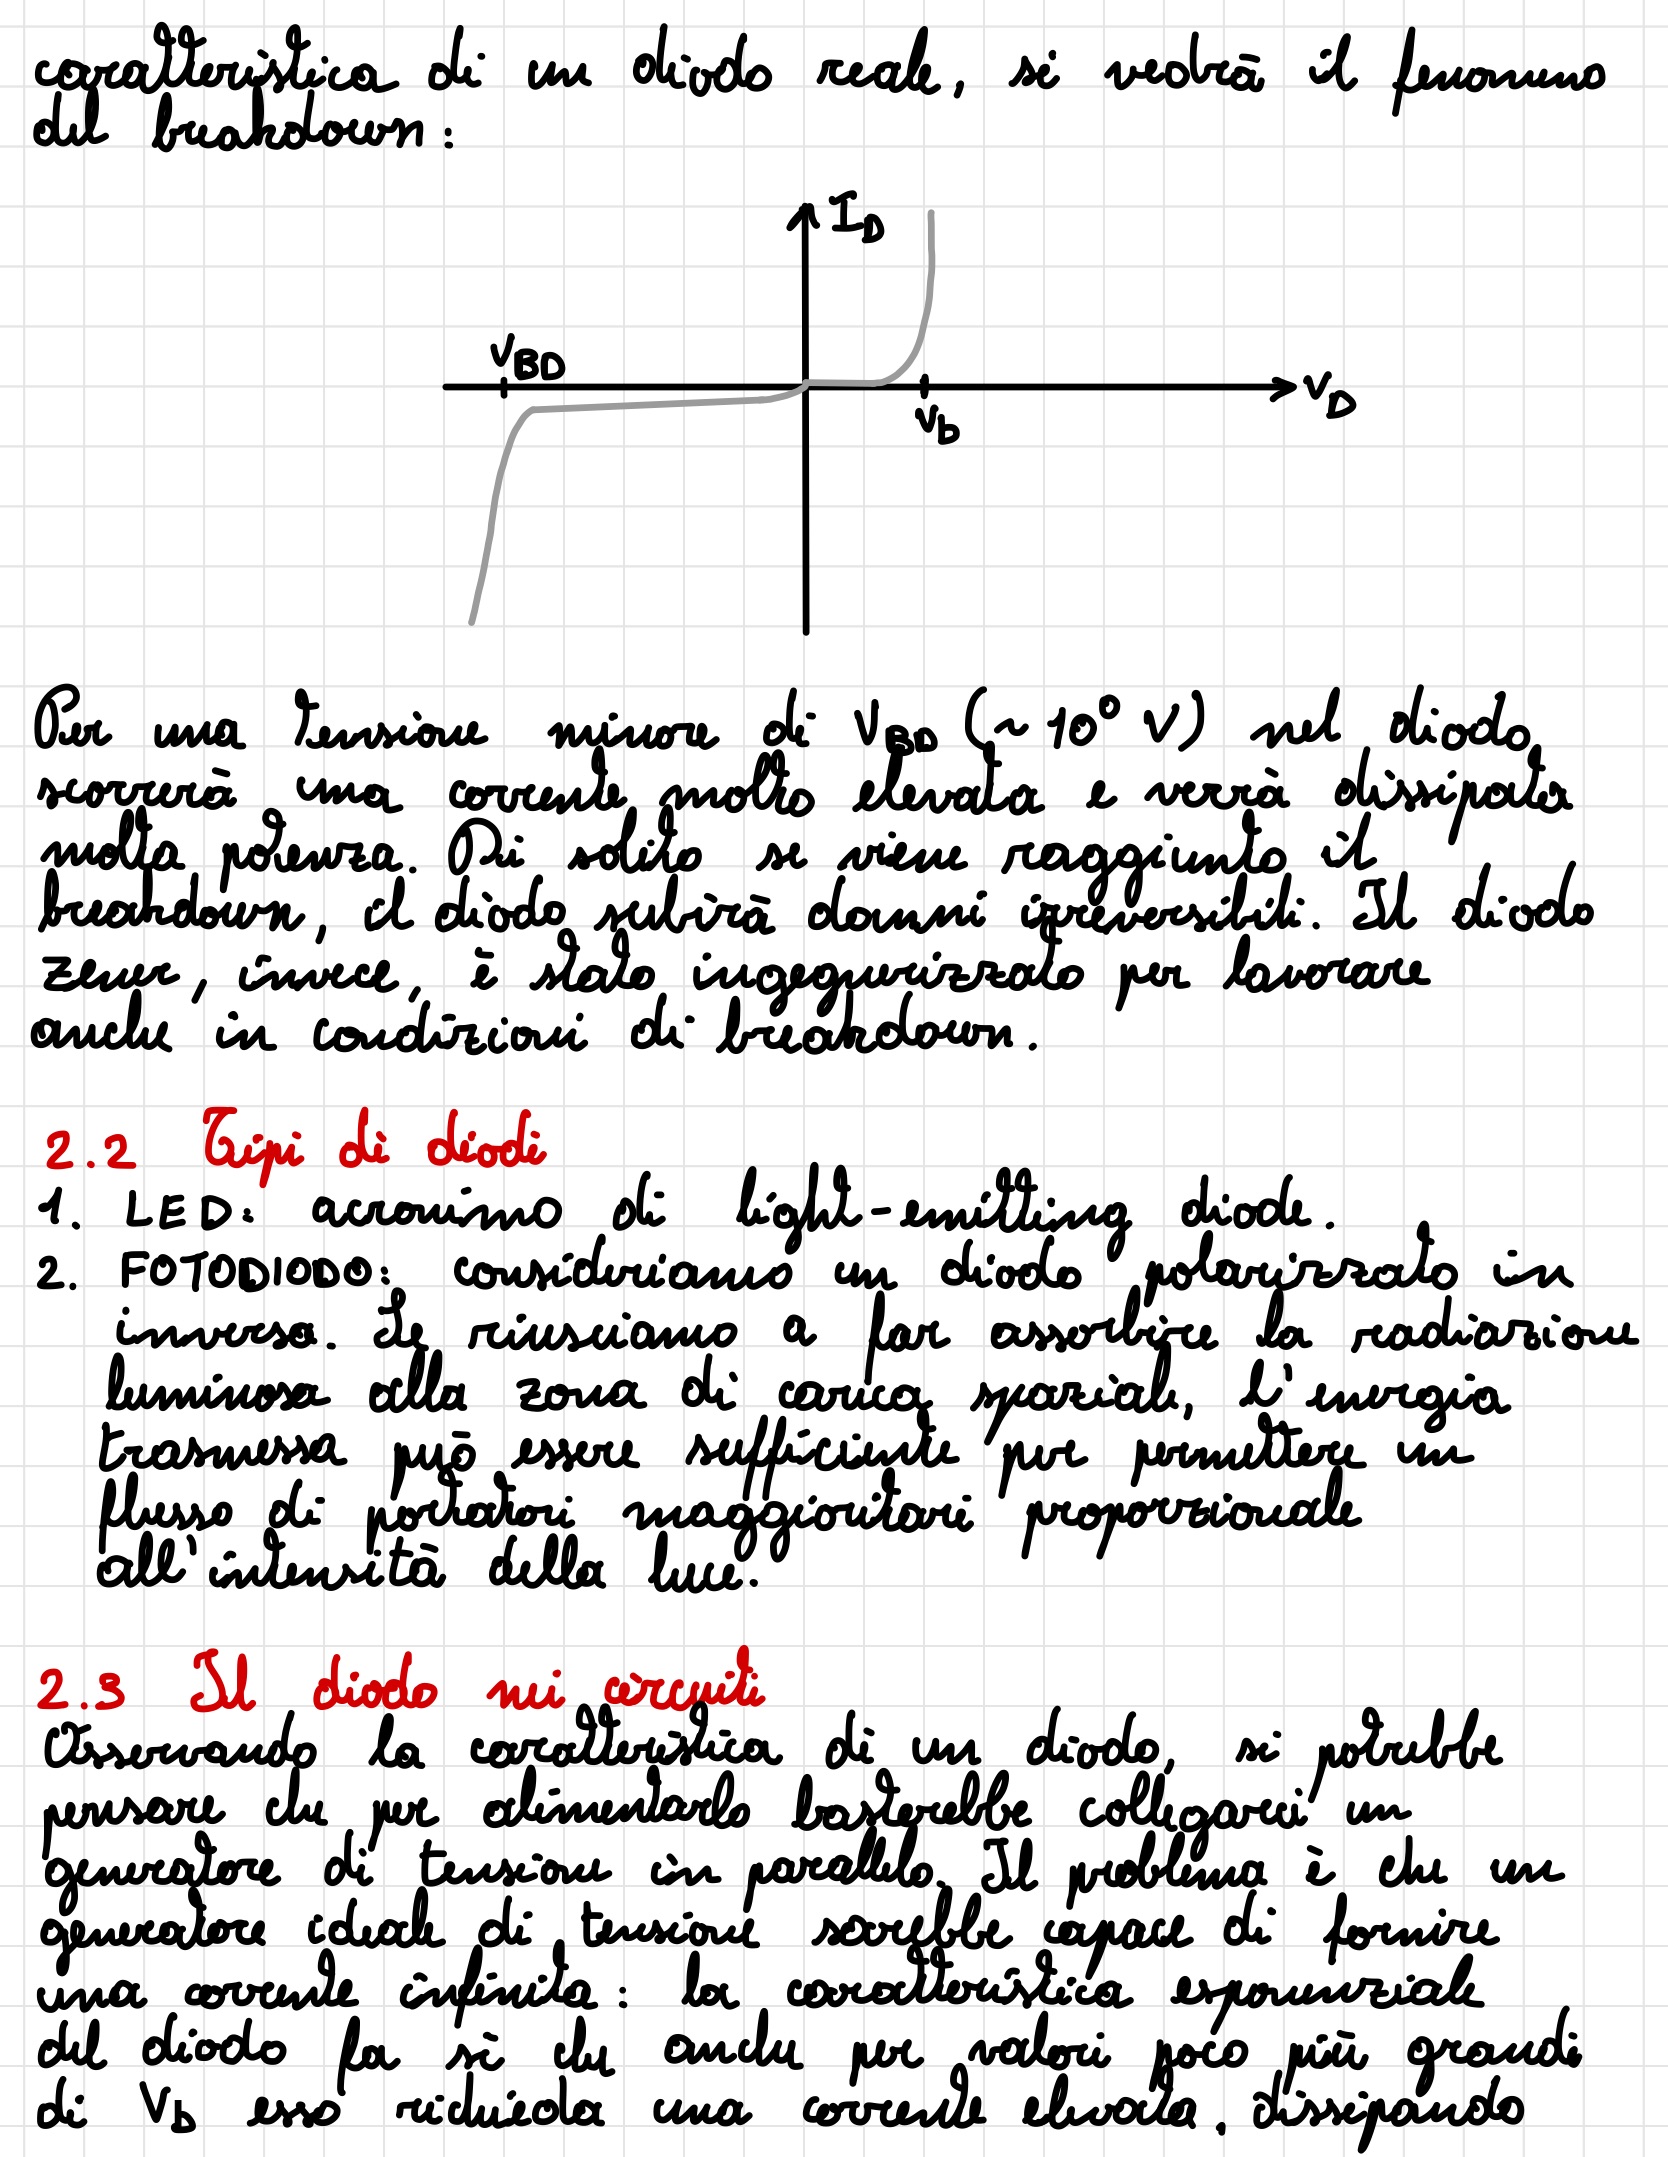 caratteristica di un diodo reale, si vedrà il fenomeno
del breakdown:
I_D
V_BD
V_D
V_b
Per una tensione minore di V_BD (~ 10⁰ V) nel diodo
scorrerà una corrente molto elevata e verrà dissipata
molta potenza. Di solito se viene raggiunto il
breakdown, il diodo subirà danni irreversibili. Il diodo
zener, invece, è stato ingegnerizzato per lavorare
anche in condizioni di breakdown.
2.2 Tipi di diodi
1. LED: acronimo di light-emitting diode.
2. FOTODIODO: consideriamo un diodo polarizzato in
inversa. Se riusciamo a far assorbire la radiazione
luminosa alla zona di carica spaziale, l'energia
trasmessa può essere sufficiente per permettere un
flusso di portatori maggioritari proporzionale
all'intensità della luce.
2.3 Il diodo nei circuiti
Osservando la caratteristica di un diodo, si potrebbe
pensare che per alimentarlo basterebbe collegarci un
generatore di tensione in parallelo. Il problema è che un
generatore ideale di tensione sarebbe capace di fornire
una corrente infinita: la caratteristica esponenziale
del diodo fa sì che anche per valori poco più grandi
di V_b esso richieda una corrente elevata, dissipando